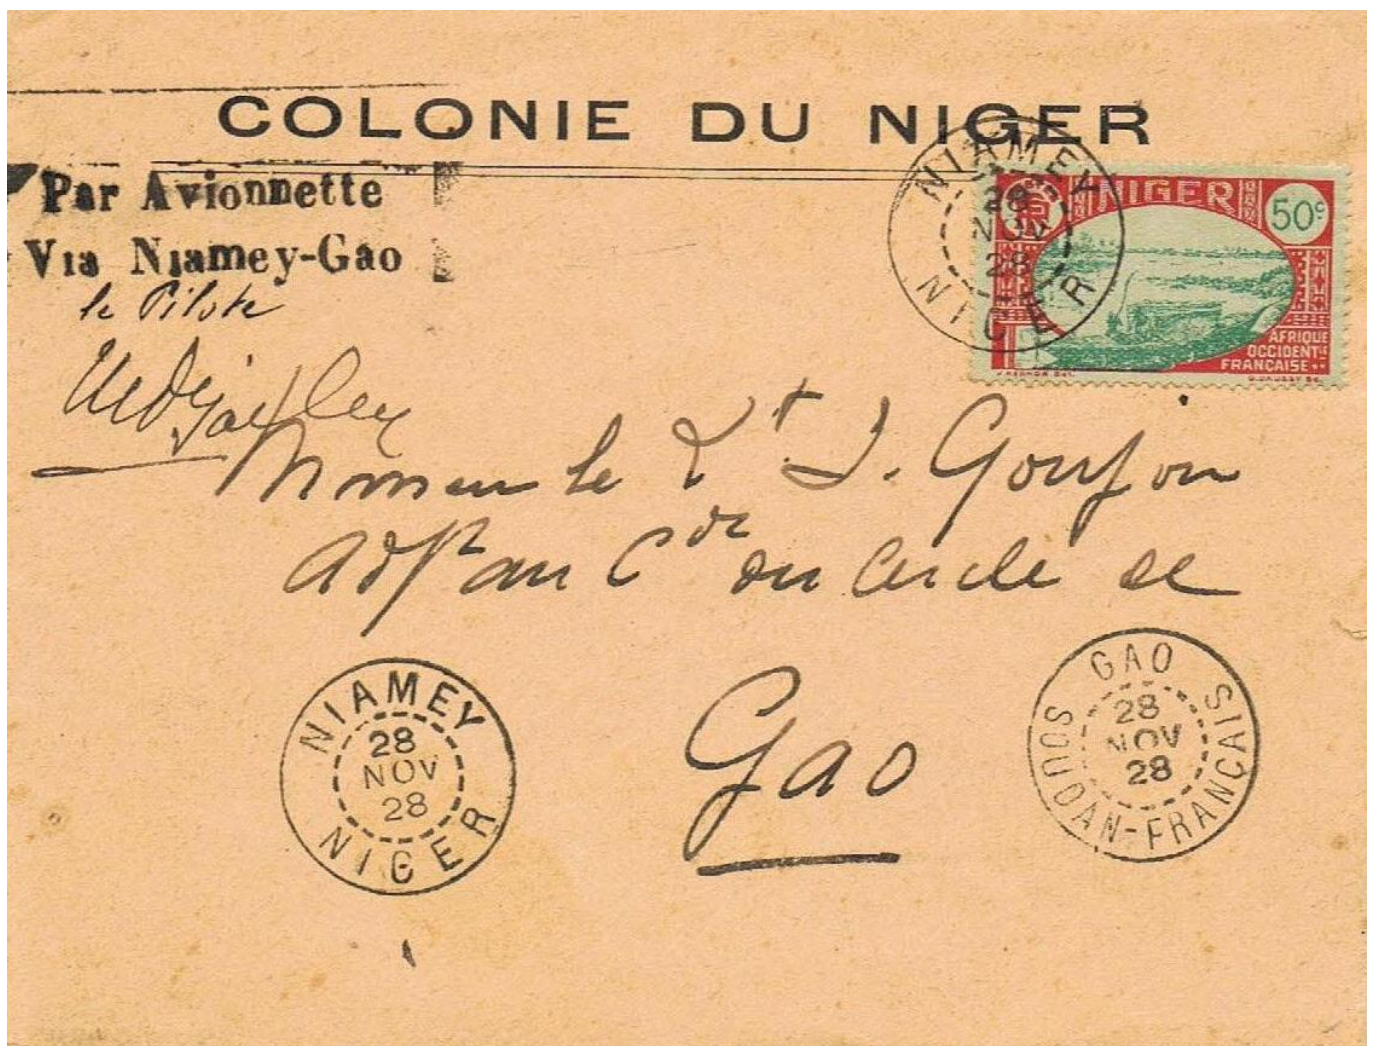 COLONIE DU NIGER
Par Avionnette
Via Niamey-Gao
le Pilote
NIAMEY
28
NOV
28
NIGER
NIGER
50c
AFRIQUE
OCCIDENTLE
FRANÇAISE
Monsieur le Lt J. Goujon
adjt au Ct du Cercle de
Gao
NIAMEY
28
NOV
28
NIGER
GAO
28
NOV
28
SOUDAN-FRANÇAIS